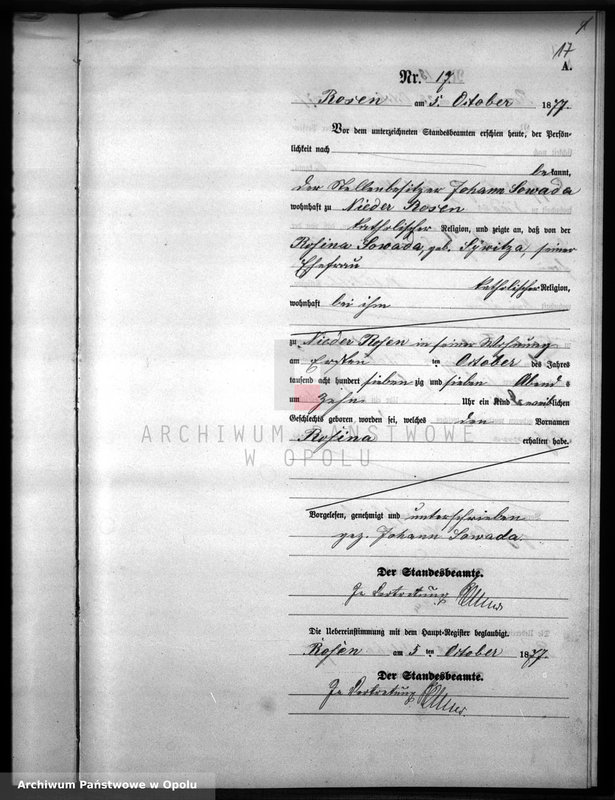 17
A.
Nr. 17.
Rosen am 5. October 1877.
Vor dem unterzeichneten Standesbeamten erschien heute, der Persön-
lichkeit nach
bekannt,
der Stellenbesitzer Johann Sowada
wohnhaft zu Nieder Rosen
katholischer Religion, und zeigte an, daß von der
Rosina Sowada, geb. seiner
Ehefrau
katholischer Religion,
wohnhaft bei ihm
zu Nieder Rosen in seiner Wohnung
am Ersten ten October des Jahres
tausend acht hundert siebenzig und sieben Abends
um Zehn Uhr ein Kind weiblichen
Geschlechts geboren worden sei, welches den Vornamen
Rosina erhalten habe.
ARCHIWUM PAŃSTWOWE
W OPOLU
Vorgelesen, genehmigt und unterschrieben
gez. Johann Sowada.
Der Standesbeamte.
In Vertretung
Die Uebereinstimmung mit dem Haupt-Register beglaubigt.
Rosen am 5 ten October 1877.
Der Standesbeamte.
In Vertretung
Archiwum Państwowe w Opolu